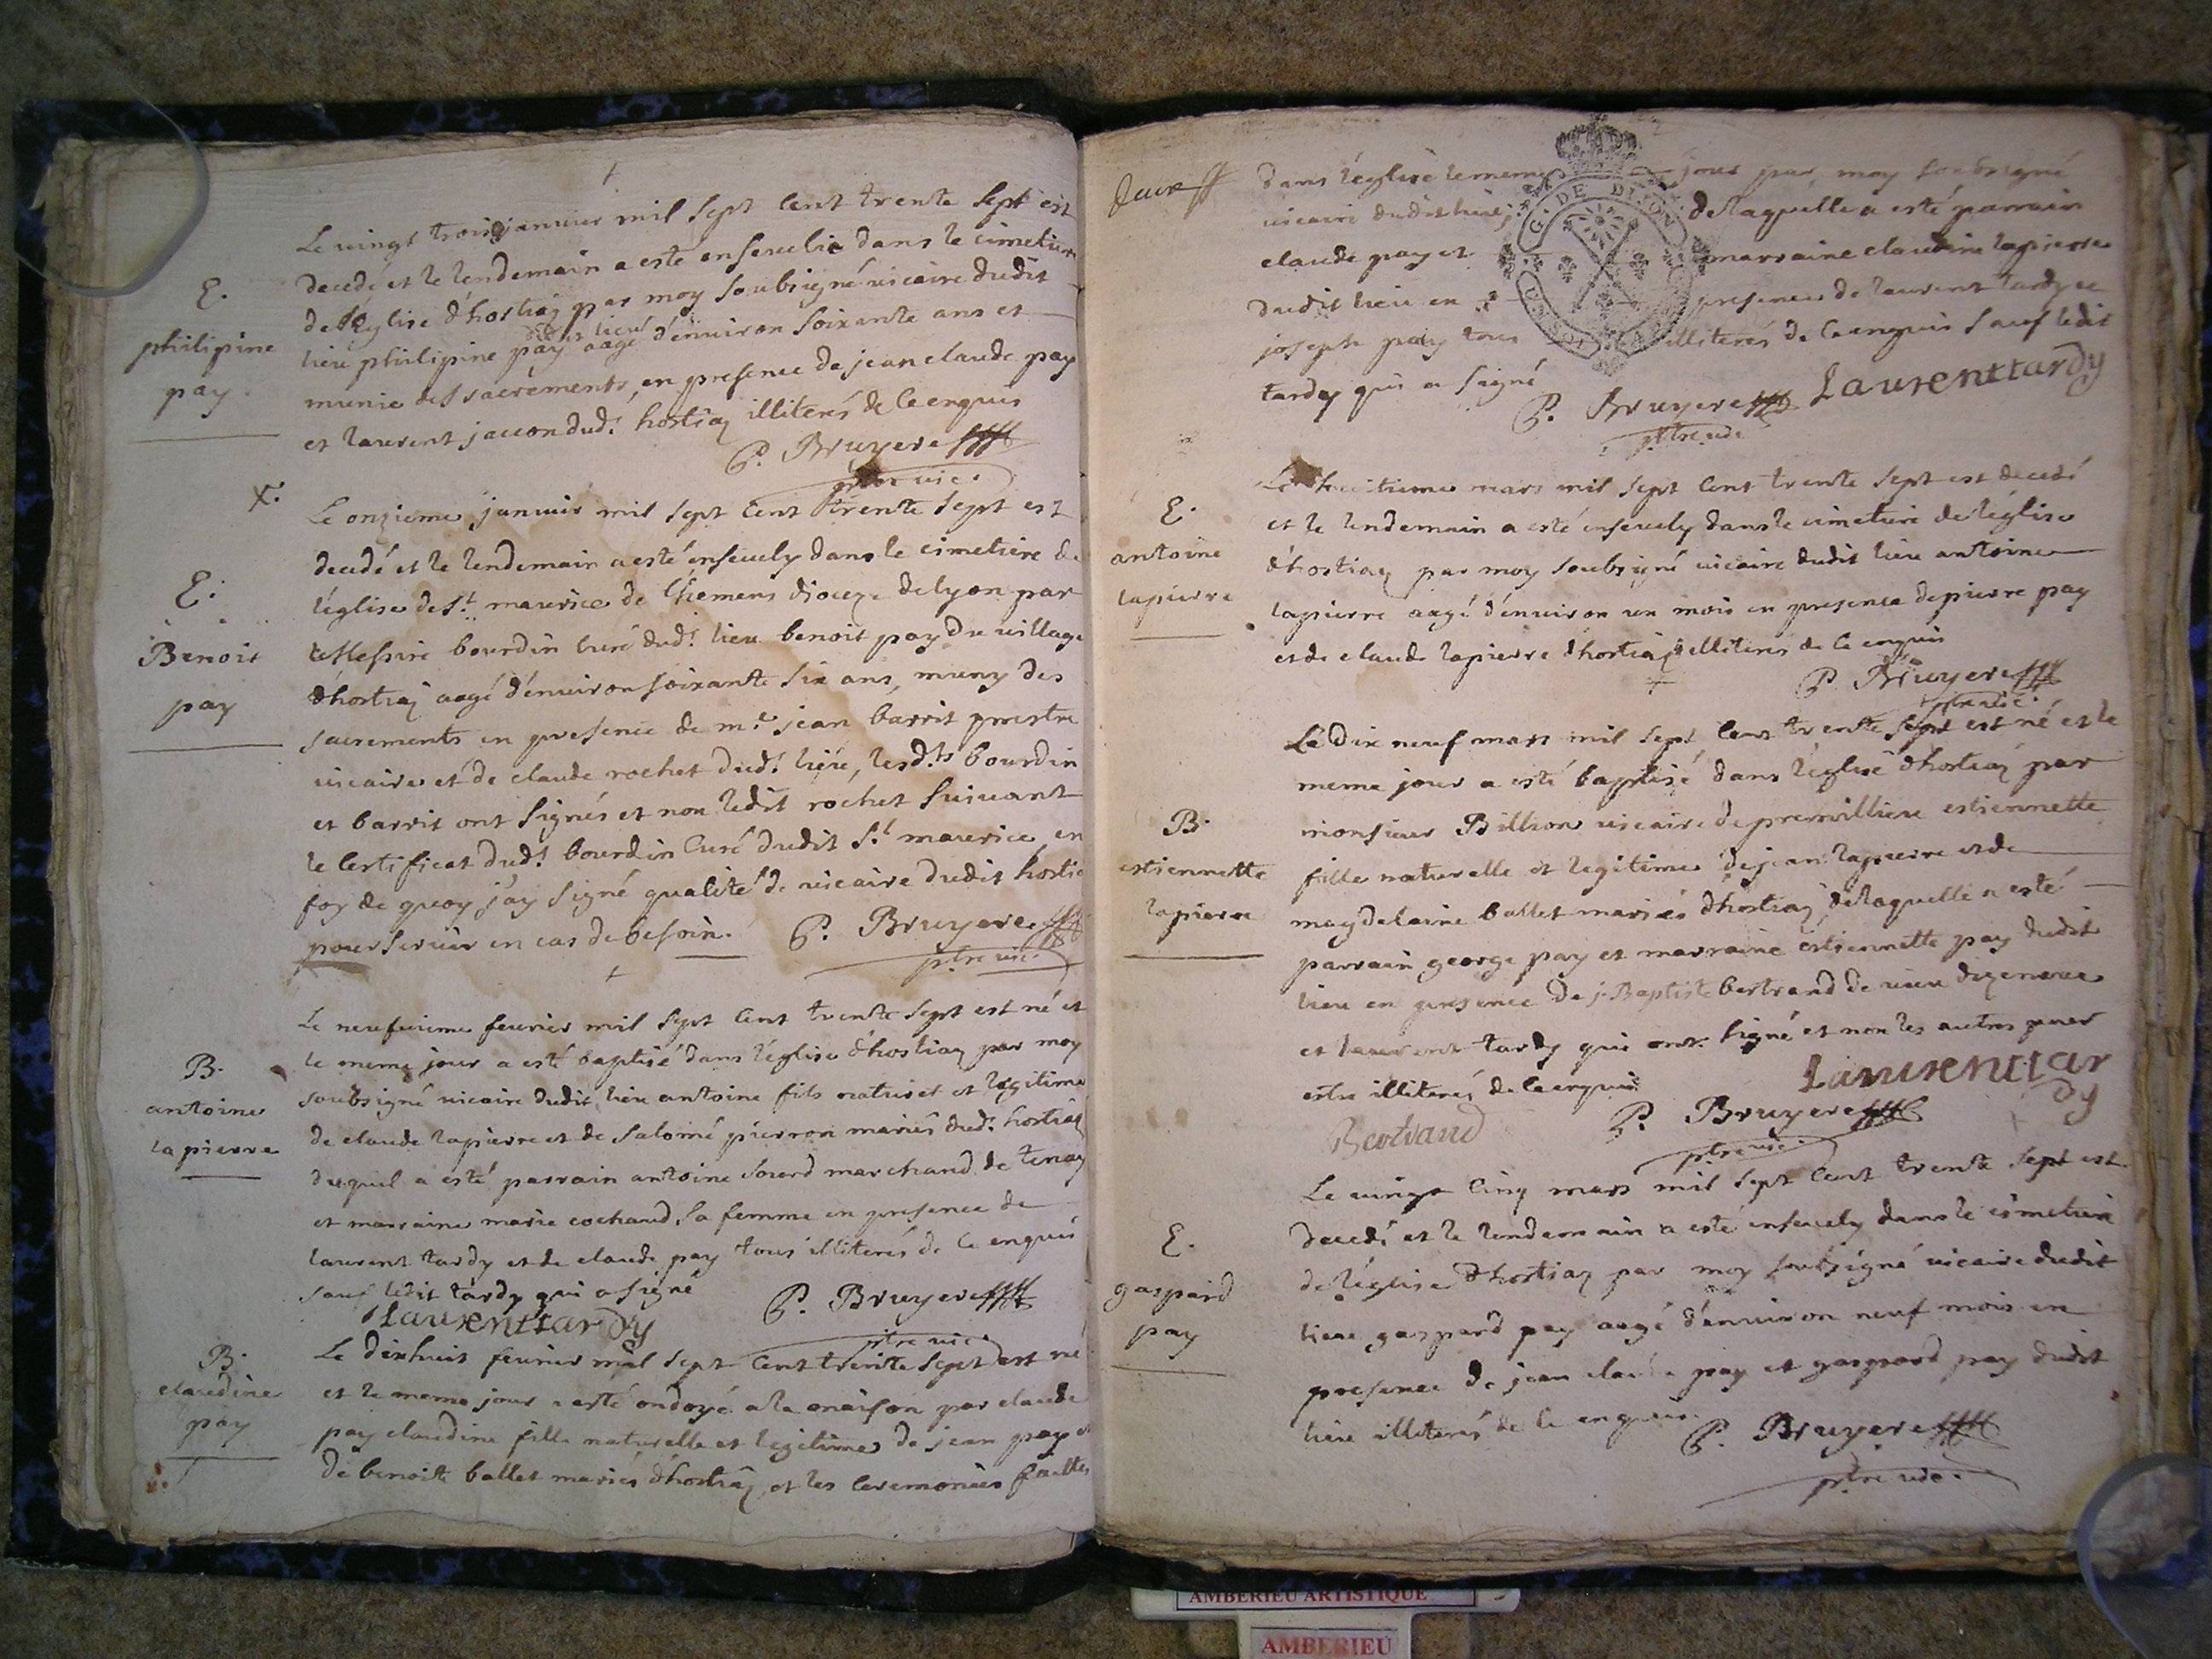 Le vingt trois janvier mil sept cent trente sept est
decedé et le lendemain a esté ensevelie dans le cimetiere
de l'Eglise d'hostiaz par moy soubsigné vicaire dudit
dudit lieu
lieu philipine pay aagé d'environ soixante ans et
munie des sacrements, en presence de jean claude pay
et laurent jacon dud.t hostiaz illiterés de ce enquis
P. Bruyere
ptre vic.
E.
philipine
pay.
X.
Le onzieme janvier mil sept cent trente sept est
decedé et le lendemain a esté ensevely dans le cimetiere de
l'église de St. maurice de Chemens dioceze de lyon par
Messire bourdin curé dud.t lieu benoit pay du village
d'hostiaz aagé d'environ soixante six ans, muny des
sacrements en presence de m.e jean barrit prestre
vicaire et de claude rochet dud.t lieu, lesd.ts bourdin
et barrit ont signés et non ledit rochet suivant
le certificat dud.t bourdin curé dudit St. maurice, en
foy de quoy j'ay signé qualité de vicaire dudit hostia
pour servir en cas de besoin. P. Bruyere
ptre vic.
E.
Benoit
pay
Le neufvieme fevrier mil sept cent trente sept est né et
le meme jour a esté baptisé dans l'église d'hostiaz par moy
soubsigné vicaire dudit lieu antoine fils naturel et legitime
de claude lapierre et de salomé pierron mariés dud.t hostiaz
duquel a esté parrain antoine sourd marchand de tenay
et marraine marie cochaud sa femme en presence de
laurent tardy et de claude pay tous illiterés de ce enquis
sauf ledit tardy qui a signé P. Bruyere
Laurent tardy
ptre vic.
B.
antoine
lapierre
Le dixhuit fevrier mil sept cent trente sept est né
et le meme jour a esté ondoyé a la maison par claude
pay claudine fille naturelle et legitime de jean pay et
de benoite ballet mariés d'hostiaz, et les ceremonies faittes
B.
claudine
pay
deux
dans l'église le meme jour par moy soubsigné
vicaire dudit lieu, de laquelle a esté parrain
claude pay et marraine claudine lapierre
dudit lieu en presence de laurent tardy et
joseph pay tous illiterés de ce enquis sauf ledit
tardy qui a signé
P. Bruyere Laurent tardy
ptre vic.
G. DE DIJON
Le huitieme mars mil sept cent trente sept est decedé
et le lendemain a esté ensevely dans le cimetiere de l'église
d'hostiaz par moy soubsigné vicaire dudit lieu antoine
lapierre aagé d'environ un mois en presence de pierre pay
et de claude lapierre d'hostiaz illiterés de ce enquis
P. Bruyere
ptre vic.
E.
antoine
lapierre
Le dix neuf mars mil sept cent trente sept est né et le
meme jour a esté baptisé dans l'église d'hostiaz par
monsieur Billion vicaire de premillieu estiennette
fille naturelle et legitime de jean lapierre et de
magdelaine ballet mariés d'hostiaz, de laquelle a esté
parrain george pay et marraine estiennette pay dudit
lieu en presence de j. Baptiste bertrand de
et laurent tardy qui ont signé et non les autres pour
estre illiterés de ce enquis
Laurent tar
dy
Bertrand
P. Bruyere
ptre vic.
B.
estiennette
lapierre
Le vingt cinq mars mil sept cent trente sept est
decedé et le lendemain a esté ensevely dans le cimetiere
de l'église d'hostiaz par moy soubsigné vicaire dudit
lieu gaspard pay aagé d'environ neuf mois en
presence de jean claude pay et gaspard pay dudit
lieu illiterés de ce enquis.
P. Bruyere
ptre vic.
E.
gaspard
pay
AMBERIEU ARTISTIQUE
AMBERIEU